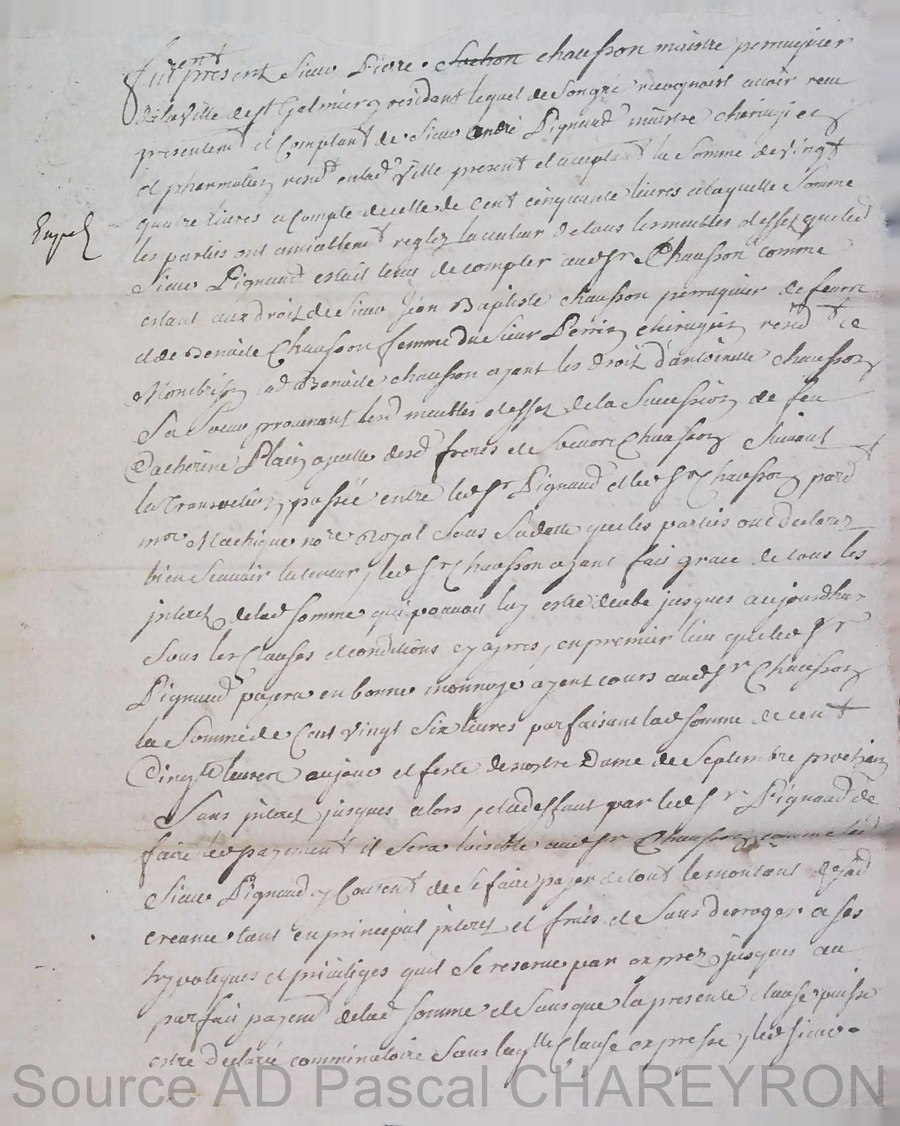 fut présent Sieur Piere Sachon chausson maistre perruquier
de la ville de St Galmier y residant lequel de son gre recognoist avoir receu
presentemt et Comptant de Sieur andré Pignaud maistre chirugie
et pharmatien resid enlad ville present et acceptant la somme de vingt
quatre livres a compte de celle de cent cinquante livres a laquelle somme
les parties ont amiablemt reglez la valeur de tous les meubles et effet que led
Sieur Pignaud estait tenu de compter aud Sr Chausson comme
estant aux droit de Sieur Jean Baptiste chausson perruquier de feurre
et de Benoite Chausson femme du Sieur Perrin chirugien resid a
Montbrison lad Benoite chausson ayant les droit d'antoinette chausson
Sa Soeur provenant lesd meubles et effet de la Sucession de feu
Catherine Plain desd freres et Soeurs Chausson Suivant
la Transaction passée entre led Sr Pignaud et led Sr Chausson pard
mre Machique nore Royal Sous Sa datte que les parties ont declare
bien Scavoir la teneur, led Sr Chausson ayant fait grace de tous les
interet de lad somme qui pouvoit luy estre deube jusques aujourdhuy
Sous les Clauses et conditions cy apres, en premier lieu que led Sr
Pignaud payera en bonne monnoye ayent cours aud Sr Chausson
la Somme de Cent vingt Six livres parfaisant lad somme de cent
Cinqte livres au jour et feste de nostre Dame de Septembre prochain
Sans interet jusques alors, et a deffaut par led Sr Pignaud de
faire led payement il Sera loisible aud Sr Chausson comme led
Sieur Pignaud y Consent de se faire payer de tout le montant de sad
creance tant en principal interet et frais et Sans derroger a ses
hypoteques et privileges quil Se reserve par exprez jusques au
parfait payemt de lad somme et Sans que la presente clause puisse
estre declaré comminatoire Sans laqlle Clause expresse, led sieur
Source AD Pascal CHAREYRON